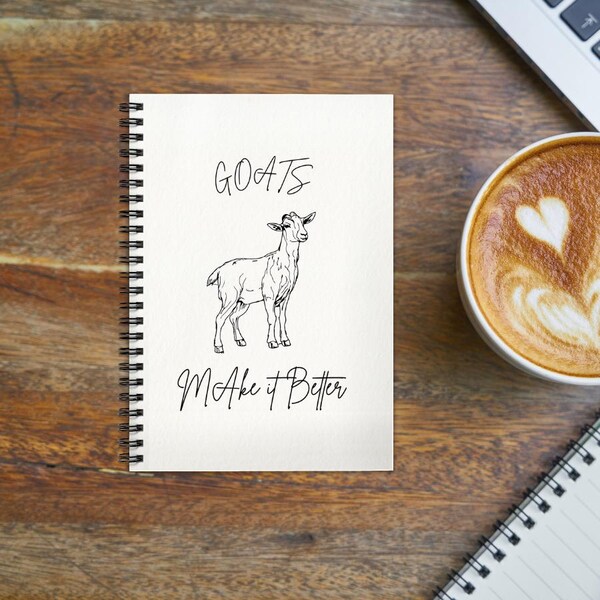 GOATS
MAke it Better